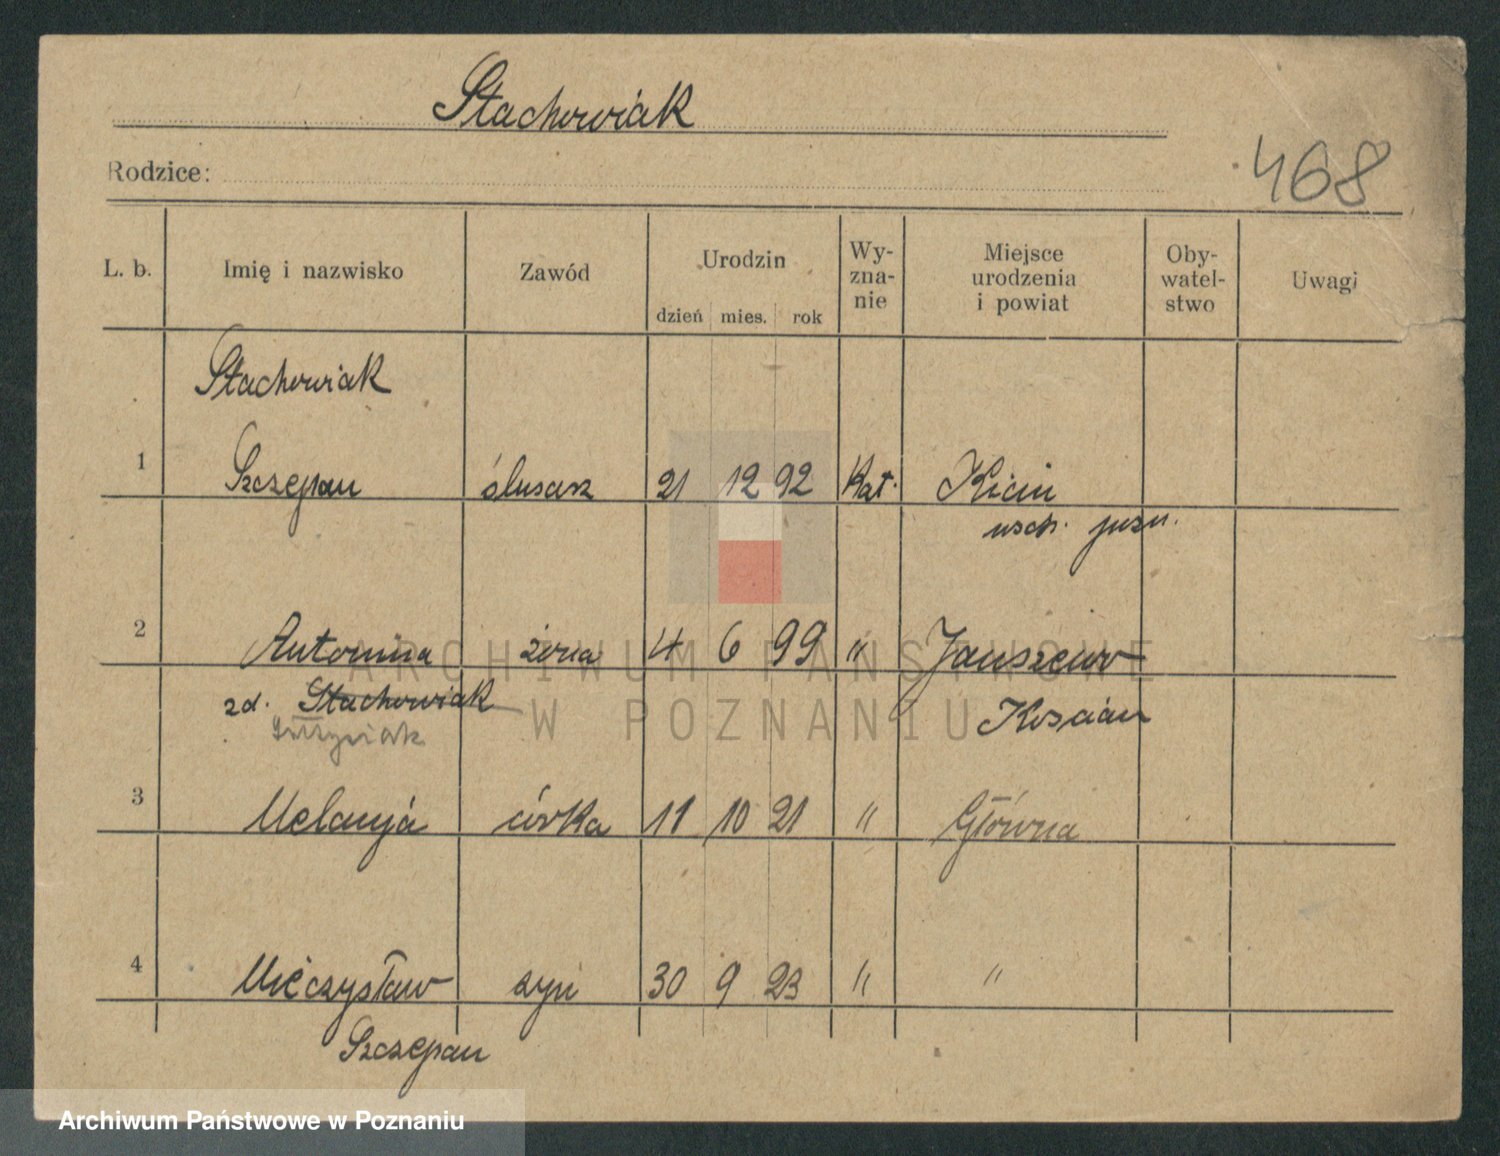 Stachowiak
Rodzice:
468
L. b. Imię i nazwisko Zawód Urodzin dzień mies. rok Wy-zna-nie Miejsce urodzenia i powiat Oby-watel-stwo Uwagi
Stachowiak
1 Szczepan ślusarz 21 12 92 Kat. Kicin
wsch. pozn.
2 Antonina żona 4 6 99 " Janszewo
zd. Stachowiak Kościan
3 Melanja córka 11 10 21 " Główna
4 Mieczysław syn 30 9 23 " "
Szczepan
ARCHIWUM PAŃSTWOWE
W POZNANIU
Archiwum Państwowe w Poznaniu